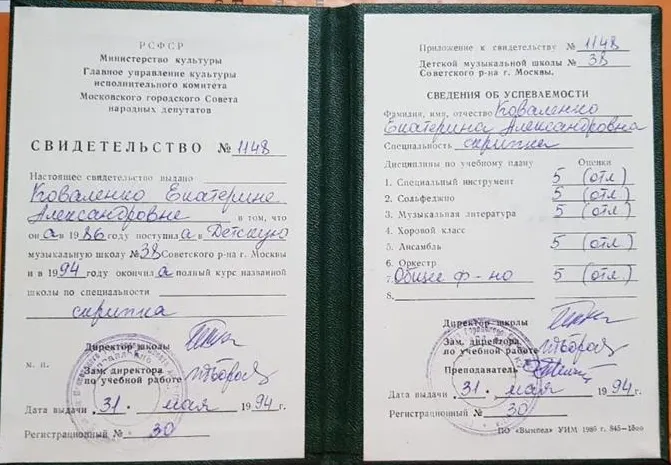 РСФСР
Министерство культуры
Главное управление культуры
исполнительного комитета
Московского городского Совета
народных депутатов
СВИДЕТЕЛЬСТВО № 1148
Настоящее свидетельство выдано
Коваленко Екатерине
Александровне в том, что
он а в 1986 году поступил а в Детскую
музыкальную школу № 38 Советского р-на г. Москвы
и в 1994 году окончил а полный курс названной
школы по специальности
скрипка
Директор школы
М. П.
Зам. директора
по учебной работе
Дата выдачи 31 мая 1994 г.
Регистрационный № 30
Приложение к свидетельству № 1148
Детской музыкальной школы № 38
Советского р-на г. Москвы.
СВЕДЕНИЯ ОБ УСПЕВАЕМОСТИ
Фамилия, имя, отчество Коваленко
Екатерина Александровна
Специальность скрипка
Дисциплины по учебному плану Оценки
1. Специальный инструмент 5 (отл)
2. Сольфеджио 5 (отл)
3. Музыкальная литература 5 (отл)
4. Хоровой класс
5. Ансамбль 5 (отл)
6. Оркестр
7. Общее ф-но 5 (отл)
8.
Директор школы
Зам. директора
по учебной работе
Преподаватель
Дата выдачи 31 мая 1994 г.
Регистрационный № 30
ПО «Вымпел» УИМ 1986 г.